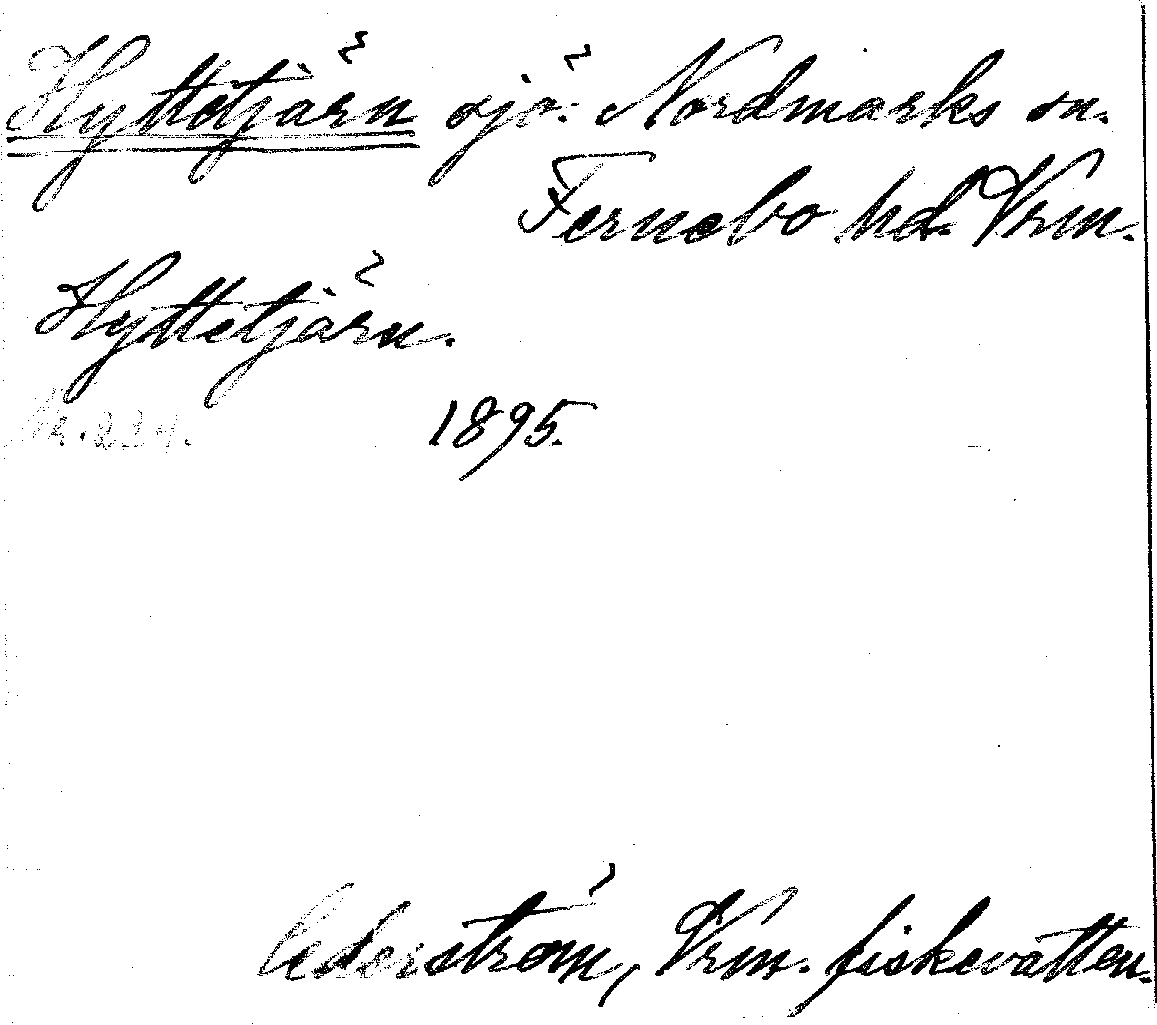 Hyttetjärn sjö: Nordmarks sn.
Fernebo hd. Vrm.
Hyttetjärn.
Nr. 234. 1895.
Cederström, Vrm. fiskevatten.